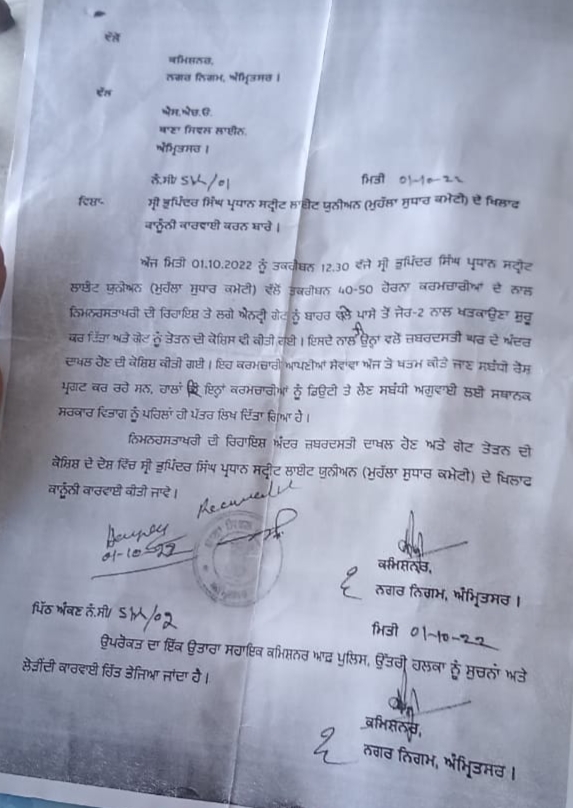 ਵੱਲੋਂ
ਕਮਿਸ਼ਨਰ,
ਨਗਰ ਨਿਗਮ, ਅੰਮ੍ਰਿਤਸਰ।
ਵੱਲ
ਐਸ.ਐਚ.ਓ.
ਥਾਣਾ ਸਿਵਲ ਲਾਈਨ,
ਅੰਮ੍ਰਿਤਸਰ।
ਨੰ.ਸੀ/ /01 ਮਿਤੀ 01-10-22
ਵਿਸ਼ਾ- ਸ੍ਰੀ ਭੁਪਿੰਦਰ ਸਿੰਘ ਪ੍ਰਧਾਨ ਸਟ੍ਰੀਟ ਲਾਈਟ ਯੂਨੀਅਨ (ਮੁਹੱਲਾ ਸੁਧਾਰ ਕਮੇਟੀ) ਦੇ ਖਿਲਾਫ
ਕਾਨੂੰਨੀ ਕਾਰਵਾਈ ਕਰਨ ਬਾਰੇ।
ਅੱਜ ਮਿਤੀ 01.10.2022 ਨੂੰ ਤਕਰੀਬਨ 12.30 ਵੱਜੇ ਸ੍ਰੀ ਭੁਪਿੰਦਰ ਸਿੰਘ ਪ੍ਰਧਾਨ ਸਟ੍ਰੀਟ
ਲਾਈਟ ਯੂਨੀਅਨ (ਮੁਹੱਲਾ ਸੁਧਾਰ ਕਮੇਟੀ) ਵੱਲੋਂ ਤਕਰੀਬਨ 40-50 ਹੋਰਨਾ ਕਰਮਚਾਰੀਆਂ ਦੇ ਨਾਲ
ਨਿਮਨਹਸਤਾਖਰੀ ਦੀ ਰਿਹਾਇਸ਼ ਤੇ ਲਗੇ ਐਨਟ੍ਰੀ ਗੇਟ ਨੂੰ ਬਾਹਰ ਵਲੇ ਪਾਸੇ ਤੋਂ ਜੋਰ-2 ਨਾਲ ਖੜਕਾਉਣਾ ਸ਼ੁਰੂ
ਕਰ ਦਿੱਤਾ ਅਤੇ ਗੇਟ ਨੂੰ ਤੋੜਨ ਦੀ ਕੋਸ਼ਿਸ਼ ਵੀ ਕੀਤੀ ਗਈ। ਇਸਦੇ ਨਾਲ ਉਨ੍ਹਾਂ ਵਲੋਂ ਜ਼ਬਰਦਸਤੀ ਘਰ ਦੇ ਅੰਦਰ
ਦਾਖਲ ਹੋਣ ਦੀ ਕੋਸ਼ਿਸ਼ ਕੀਤੀ ਗਈ। ਇਹ ਕਰਮਚਾਰੀ ਆਪਣੀਆਂ ਸੇਵਾਵਾਂ ਅੱਜ ਤੇ ਖਤਮ ਕੀਤੇ ਜਾਣ ਸਬੰਧੀ ਰੋਸ
ਪ੍ਰਗਟ ਕਰ ਰਹੇ ਸਨ, ਹਾਲਾਂ ਕਿ ਇਨ੍ਹਾਂ ਕਰਮਚਾਰੀਆਂ ਨੂੰ ਡਿਊਟੀ ਤੇ ਲੈਣ ਸਬੰਧੀ ਅਗੁਵਾਈ ਲਈ ਸਥਾਨਕ
ਸਰਕਾਰ ਵਿਭਾਗ ਨੂੰ ਪਹਿਲਾਂ ਹੀ ਪੱਤਰ ਲਿਖ ਦਿੱਤਾ ਗਿਆ ਹੈ।
ਨਿਮਨਹਸਤਾਖਰੀ ਦੀ ਰਿਹਾਇਸ਼ ਅੰਦਰ ਜ਼ਬਰਦਸਤੀ ਦਾਖਲ ਹੋਣ ਅਤੇ ਗੇਟ ਤੋੜਨ ਦੀ
ਕੋਸ਼ਿਸ਼ ਦੇ ਦੋਸ਼ ਵਿੱਚ ਸ੍ਰੀ ਭੁਪਿੰਦਰ ਸਿੰਘ ਪ੍ਰਧਾਨ ਸਟ੍ਰੀਟ ਲਾਈਟ ਯੂਨੀਅਨ (ਮੁਹੱਲਾ ਸੁਧਾਰ ਕਮੇਟੀ) ਦੇ ਖਿਲਾਫ
ਕਾਨੂੰਨੀ ਕਾਰਵਾਈ ਕੀਤੀ ਜਾਵੇ।
01-10-22
ਕਮਿਸ਼ਨਰ,
ਨਗਰ ਨਿਗਮ, ਅੰਮ੍ਰਿਤਸਰ।
ਪਿੱਠ ਅੰਕਣ ਨੰ.ਸੀ/ /02 ਮਿਤੀ 01-10-22
ਉਪਰੋਕਤ ਦਾ ਇੱਕ ਉਤਾਰਾ ਸਹਾਇਕ ਕਮਿਸ਼ਨਰ ਆਫ਼ ਪੁਲਿਸ, ਉੱਤਰੀ ਹਲਕਾ ਨੂੰ ਸੁਚਨਾਂ ਅਤੇ
ਲੋੜੀਂਦੀ ਕਾਰਵਾਈ ਹਿੱਤ ਭੇਜਿਆ ਜਾਂਦਾ ਹੈ।
ਕਮਿਸ਼ਨਰ,
ਨਗਰ ਨਿਗਮ, ਅੰਮ੍ਰਿਤਸਰ।